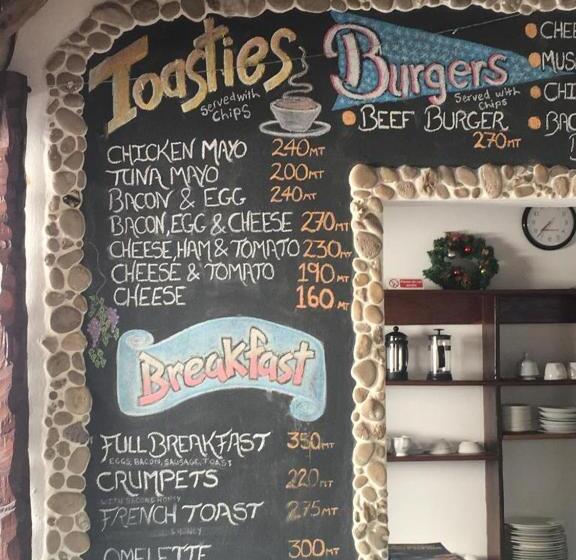 Toasties
served with
chips
CHICKEN MAYO 240MT
TUNA MAYO 200MT
BACON & EGG 240MT
BACON, EGG & CHEESE 270MT
CHEESE, HAM & TOMATO 230MT
CHEESE & TOMATO 190MT
CHEESE 160MT
Breakfast
FULL BREAKFAST 350MT
EGGS, BACON, SAUSAGE, TOAST
CRUMPETS 220MT
WITH BACON & HONEY
FRENCH TOAST 275MT
& HONEY
OMELETTE 300MT
Burgers
Served with
chips
BEEF BURGER
270MT
CHEE
MUS
CHI
BAC